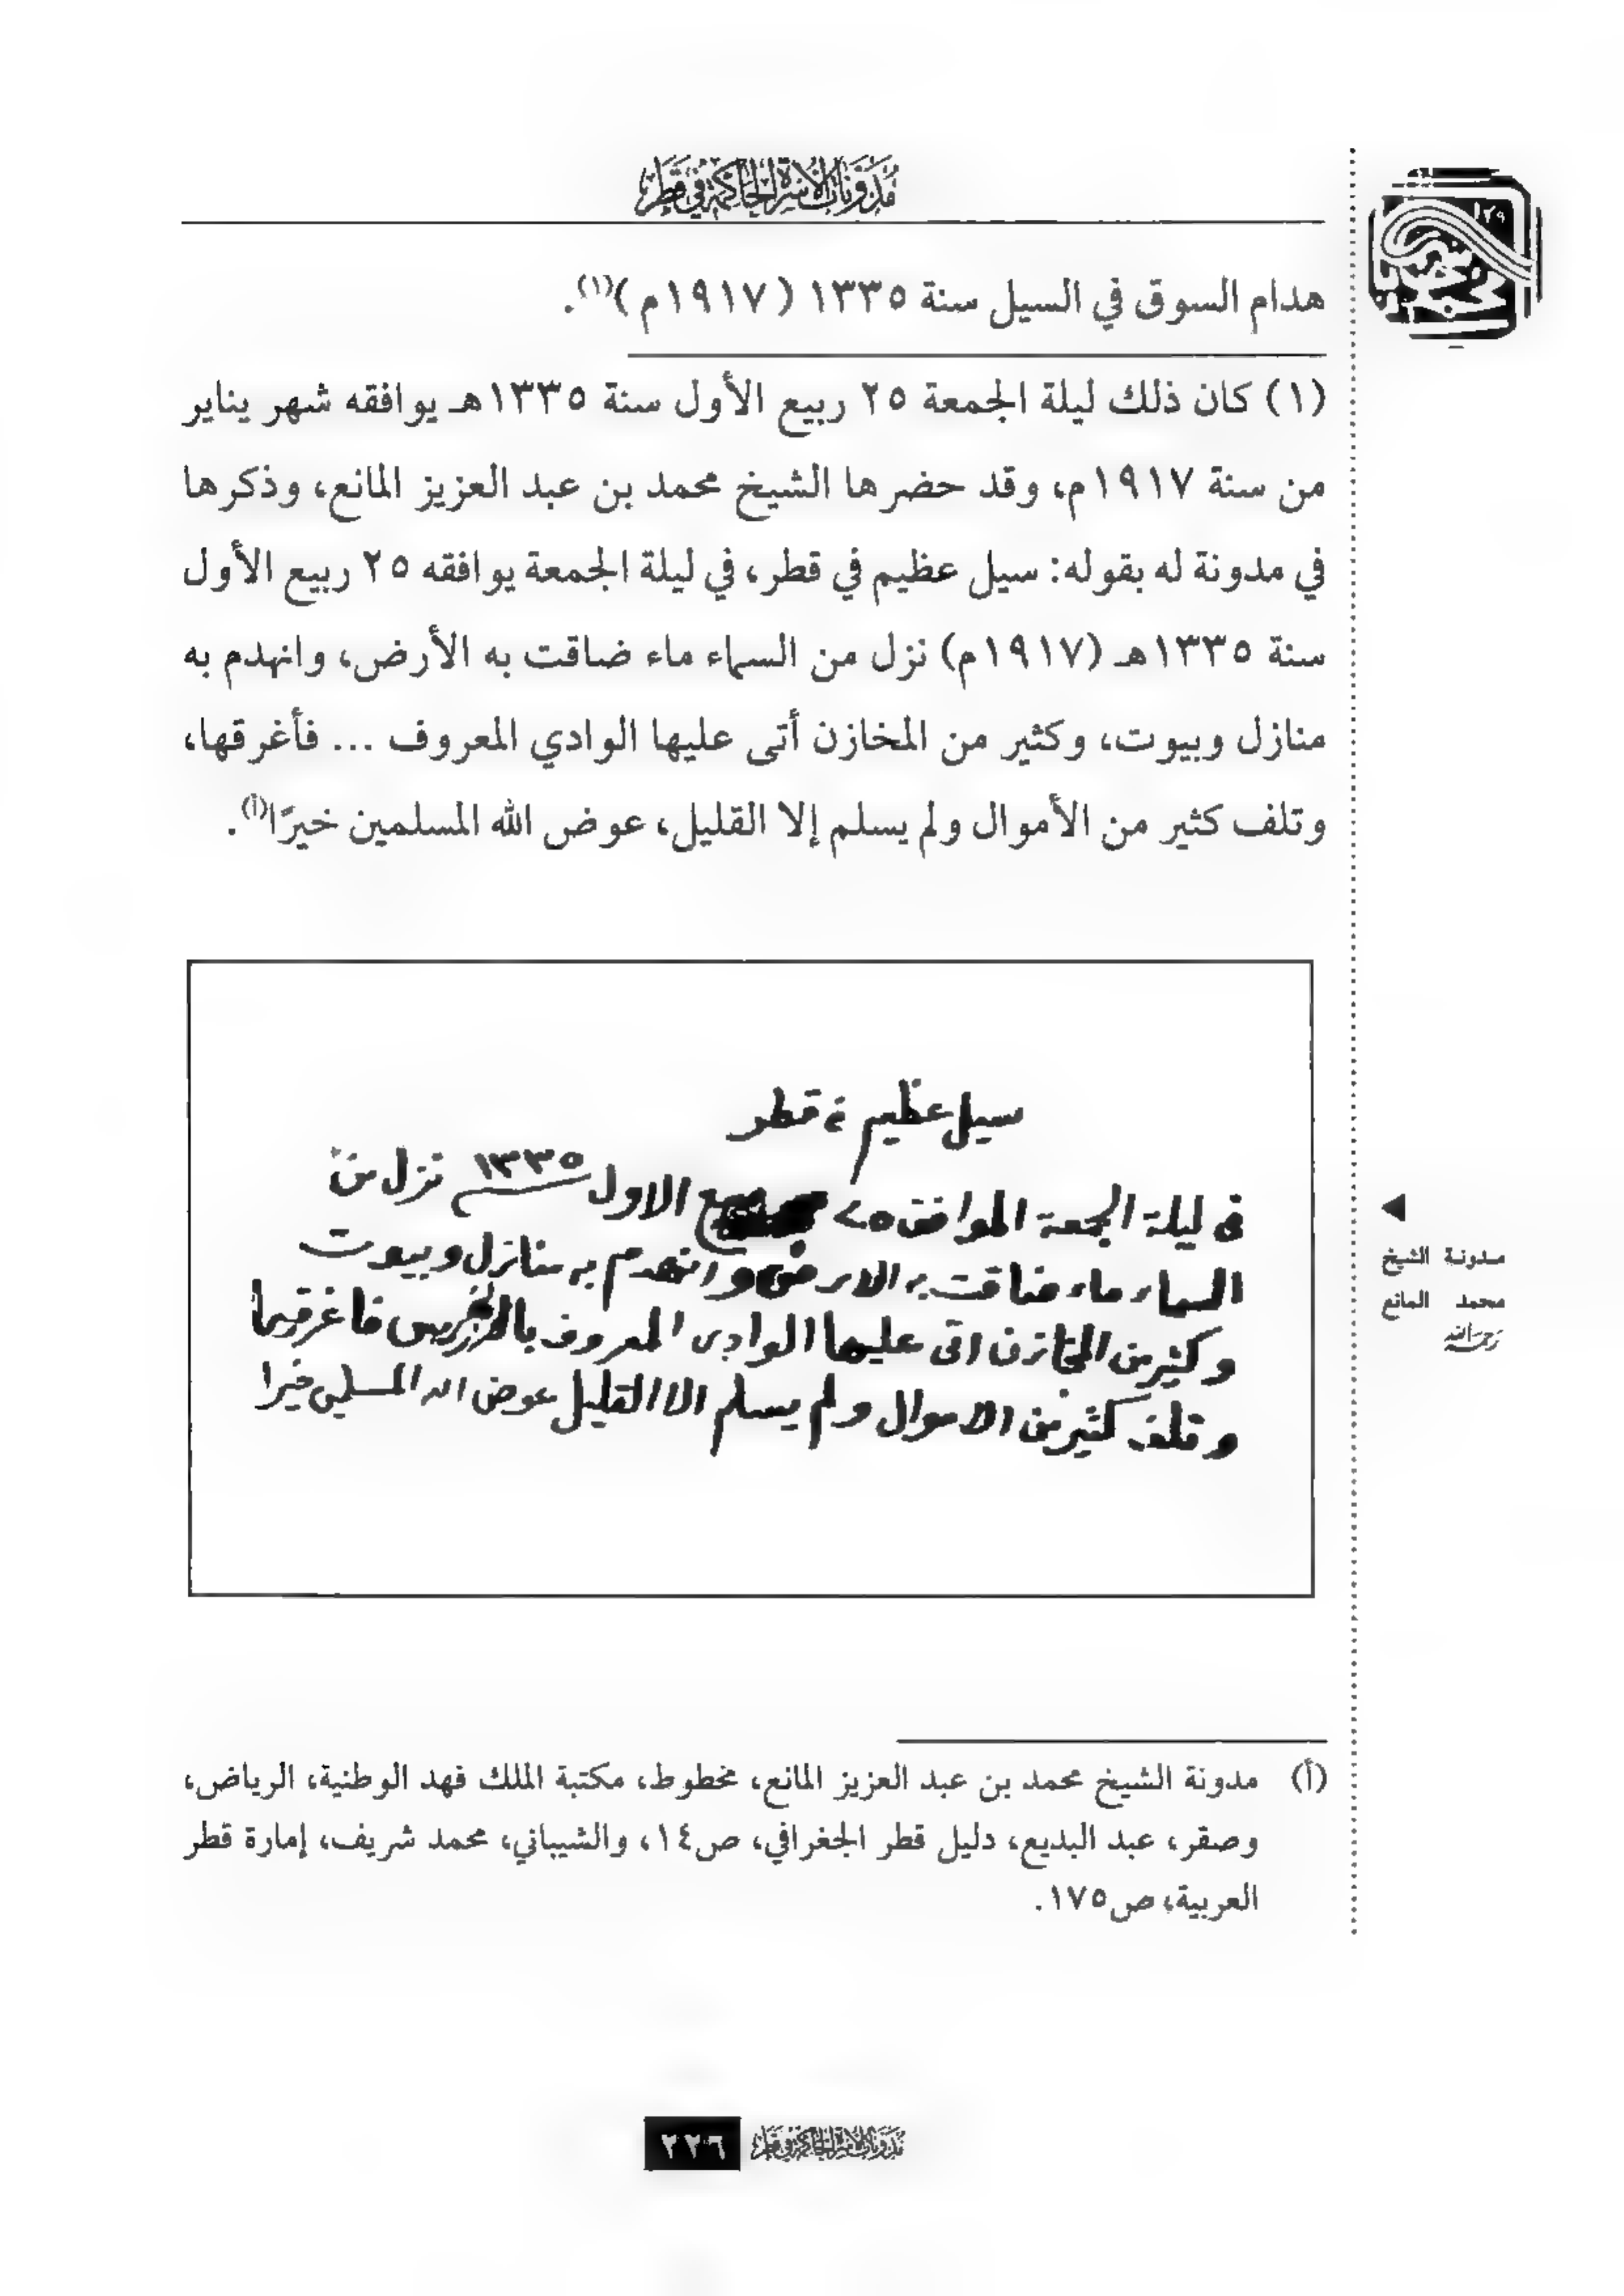 مدونات الأسرة الحاكمة في قطر
١٢٩
هدام السوق في السيل سنة ١٣٣٥ (١٩١٧م)(١).
(١) كان ذلك ليلة الجمعة ٢٥ ربيع الأول سنة ١٣٣٥هـ يوافقه شهر يناير
من سنة ١٩١٧م، وقد حضرها الشيخ محمد بن عبد العزيز المانع، وذكرها
في مدونة له بقوله: سيل عظيم في قطر، في ليلة الجمعة يوافقه ٢٥ ربيع الأول
سنة ١٣٣٥هـ (١٩١٧م) نزل من السماء ماء ضاقت به الأرض، وانهدم به
منازل وبيوت، وكثير من المخازن أتى عليها الوادي المعروف ... فأغرقها،
وتلف كثير من الأموال ولم يسلم إلا القليل، عوض الله المسلمين خيرًا(أ).
سيل عظيم في قطر
في ليلة الجمعة الموافق ٢٥ ربيع الاول ١٣٣٥ نزل من
السماء ماء ضاقت به الارض وانهدم به منازل وبيوت
وكثير من المخازن اتى عليها الوادي المعروف فاغرقها
وتلف كثير من الاموال ولم يسلم الا القليل عوض الله المسلمين خيرا
مدونة الشيخ
محمد المانع
رحمه الله
(أ) مدونة الشيخ محمد بن عبد العزيز المانع، مخطوط، مكتبة الملك فهد الوطنية، الرياض،
وصقر، عبد البديع، دليل قطر الجغرافي، ص١٤، والشيباني، محمد شريف، إمارة قطر
العربية، ص١٧٥.
مدونات الأسرة الحاكمة في قطر
٢٢٦